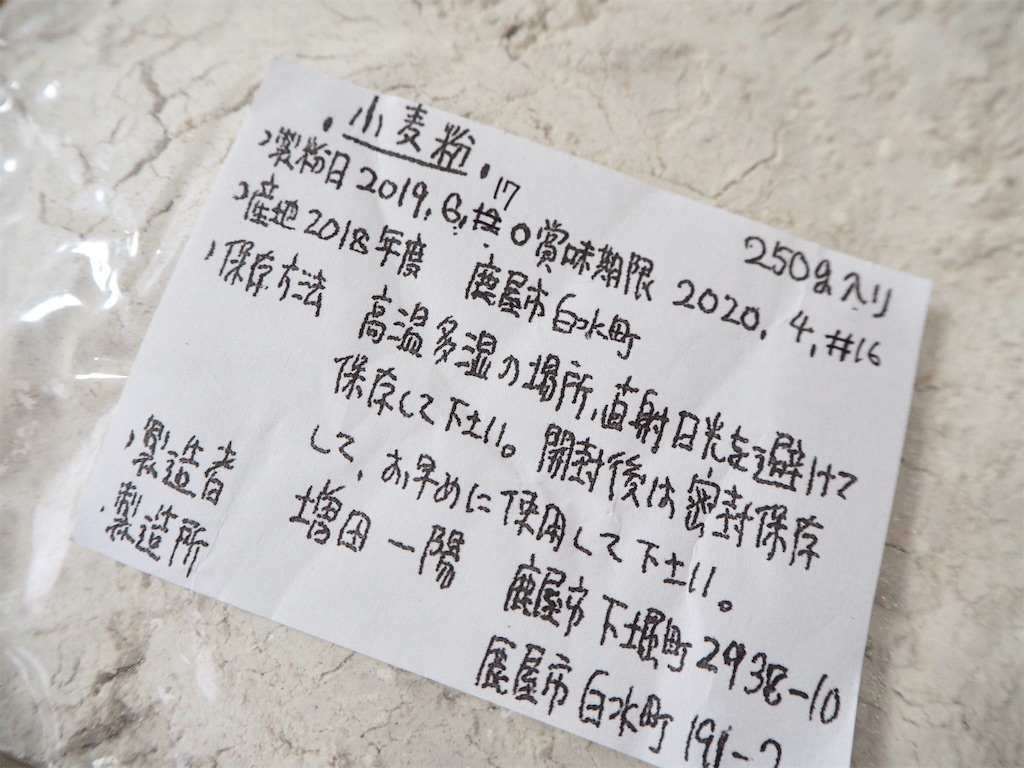 ・小麦粉・ 250g入り
・製粉日 2019.6.17 ○賞味期限 2020.4.16
・産地 2018年度 鹿屋市白水町
・保存方法 高温多湿の場所、直射日光を避けて
保存して下土い。開封後は密封保存
して、お早めに使用して下土い。
・製造者 増田一陽 鹿屋市下堀町2938-10
・製造所 鹿屋市白水町191-2